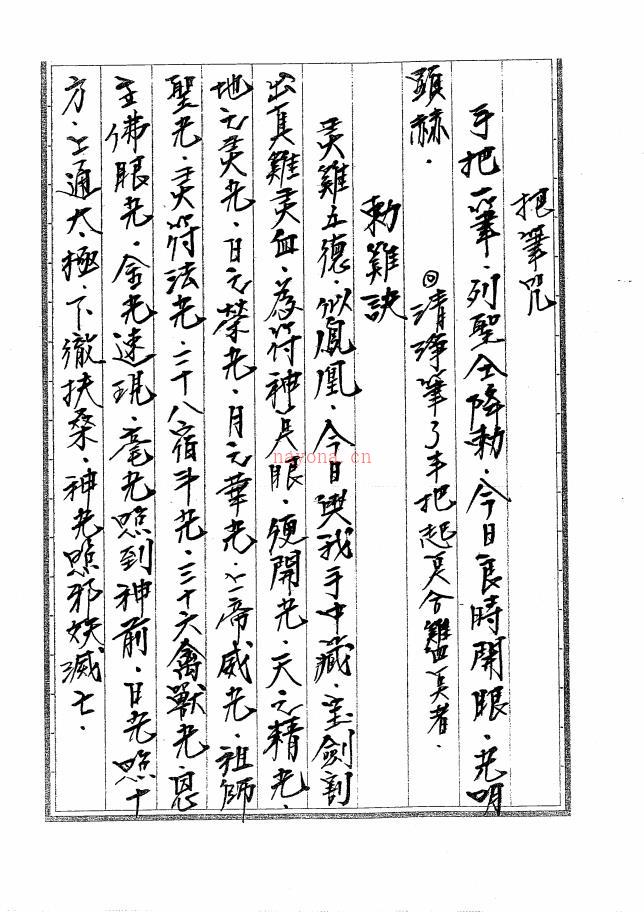 把筆咒
手把一筆．列聖仝降勅．今日良時開眼．光明
顕赫．
◎清淨筆了手把起 合雞血 者．
勅雞訣
灵雞五德．似鳳凰．今日與我手中藏．宝劍割
出真雞灵血．為符神点眼．便開光．天之精光．
地之灵光．日之榮光．月之華光．上帝威光．祖師
聖光．灵符法光．二十八宿斗光．三十六禽獸光．恩
主佛眼光．金光速現．毫光照到神前．日光照十
方．上通太極．下徹扶桑．神光照邪妖滅亡．
nayona.cn